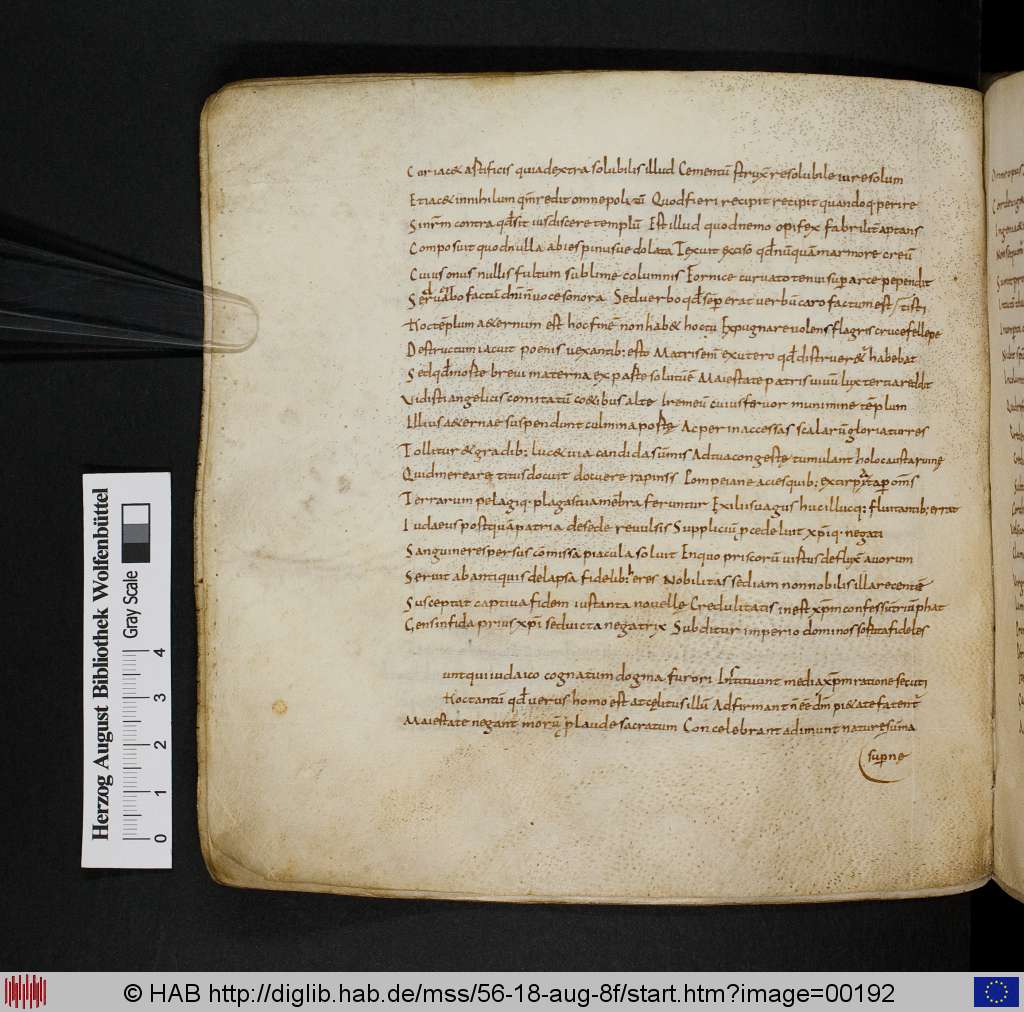 Corriacet artificis quia dextra solubilis illud Cementū struxit resolubile iure solum
Etiacet innihilum qm̄ redit omne politū Quod fieri recipit recipit quandoq; perire
Sinr̄m contra qd̄ sit ius discere templū Est illud quod nemo opifex fabrilit̄ aptans
Composuit quod nulla abies pinusue dolata Texuit exciso qd̄ nūquā marmore creuit
Cuius onus nullis fultum sublime columnis Fornice curuato tenui sup̄ arce pependit
Sed uerbo factū dn̄i n̄ uoce sonora Sed uerbo qd̄ semp̄ erat uerbū caro factum est
Hoc templum aeternum est hoc finē non habet hoc tu Expugnare uolens flagris cruce felle
Destructum iacuit poenis uexantib; esto Matris em̄ ex utero qd̄ distrueretur habebat
Sed qd̄ morte breui materna ex parte solutū ē Maiestate patris uiuū lux tertia reddit
Vidisti angelicis comitatū coetibus alte me cuius feruor munimine tēplum
Illius aeternae suspendunt culmina portae Ac per inaccessas scalarū gloria turres
Tollitur et gradib; lucet uia candida sūmis Ad tua congestę tumulant holocausta ruinę
Quid mereare titus docuit docuere rapinis Pompeianę acies quib; extirpata per om̄s
Terrarum pelagiq; plagas tua mēbra feruntur Exiliis uagus huc illuc; fluitantib; errat
Iudaeus postquā patria de sede reuulsus Suppliciū p cede luit xp̄iq; negati
Sanguine respersus cōmissa piacula soluit En quo priscorū uirtus defluxit auorum
Seruit ab antiquis delapsa fidelib; eres Nobilitas sed iam non nobilis illa recentē
Susceptat captiua fidem uis tanta nouelle Credulitatis inest xp̄m confessu triūphat
Gens infida prius xp̄i sed uicta negatrix Subditur imperio dominos sortita fideles
unt qui iudaico cognatum dogma furori Instituunt media xp̄m ratione secuti
Hoc tantū qd̄ uerus homo est at celitus illū Adfirmant n̄ eē dm̄ pietate fatentr̄
Maiestate negant morū p laude sacratum Concelebrant adimunt naturę sūma
supernę
Herzog August Bibliothek Wolfenbüttel
Gray Scale
0 1 2 3 4
© HAB http://diglib.hab.de/mss/56-18-aug-8f/start.htm?image=00192